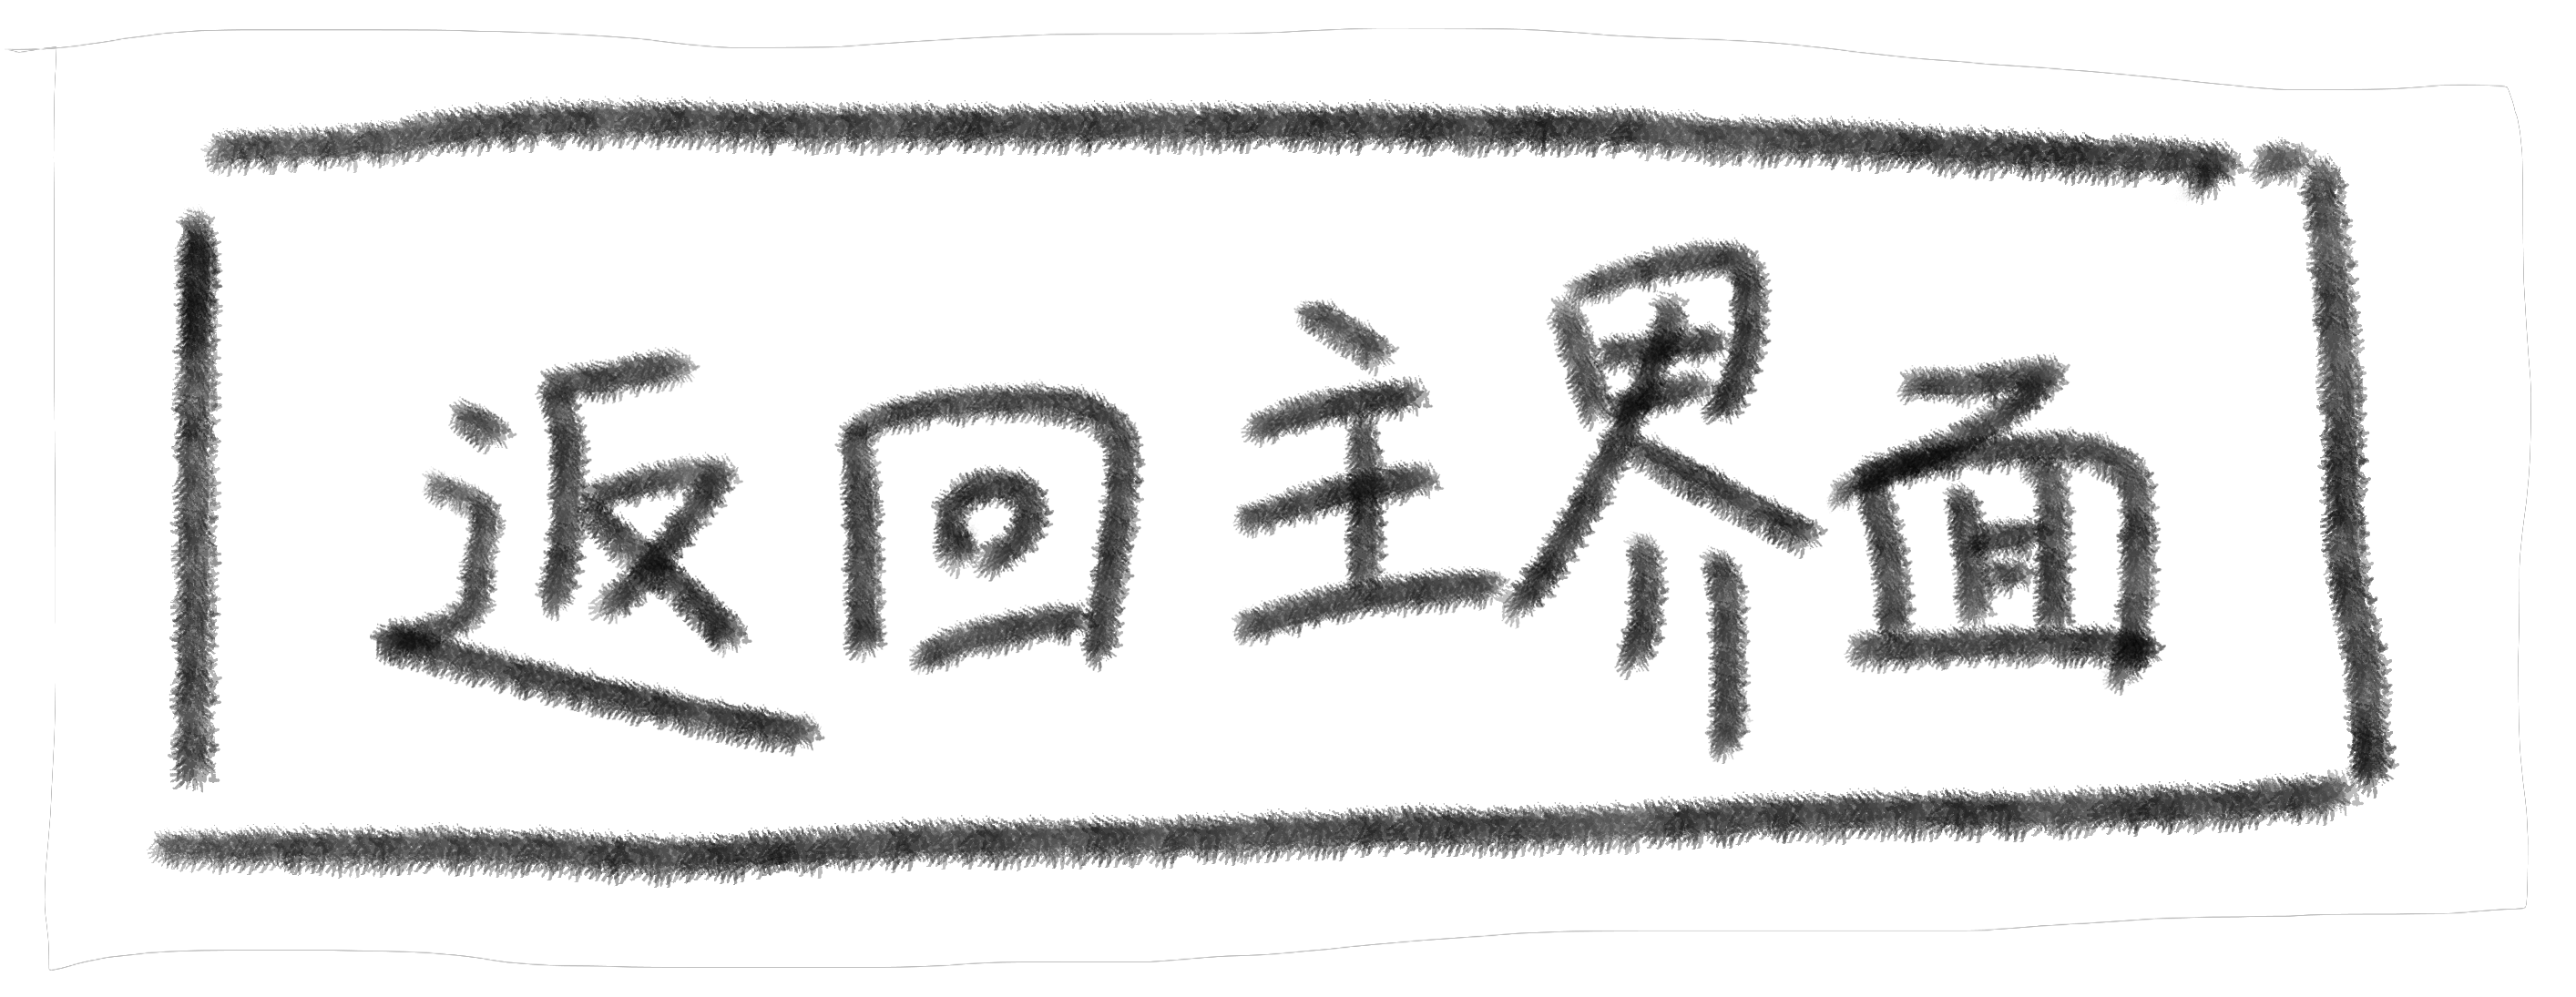 返回主界面